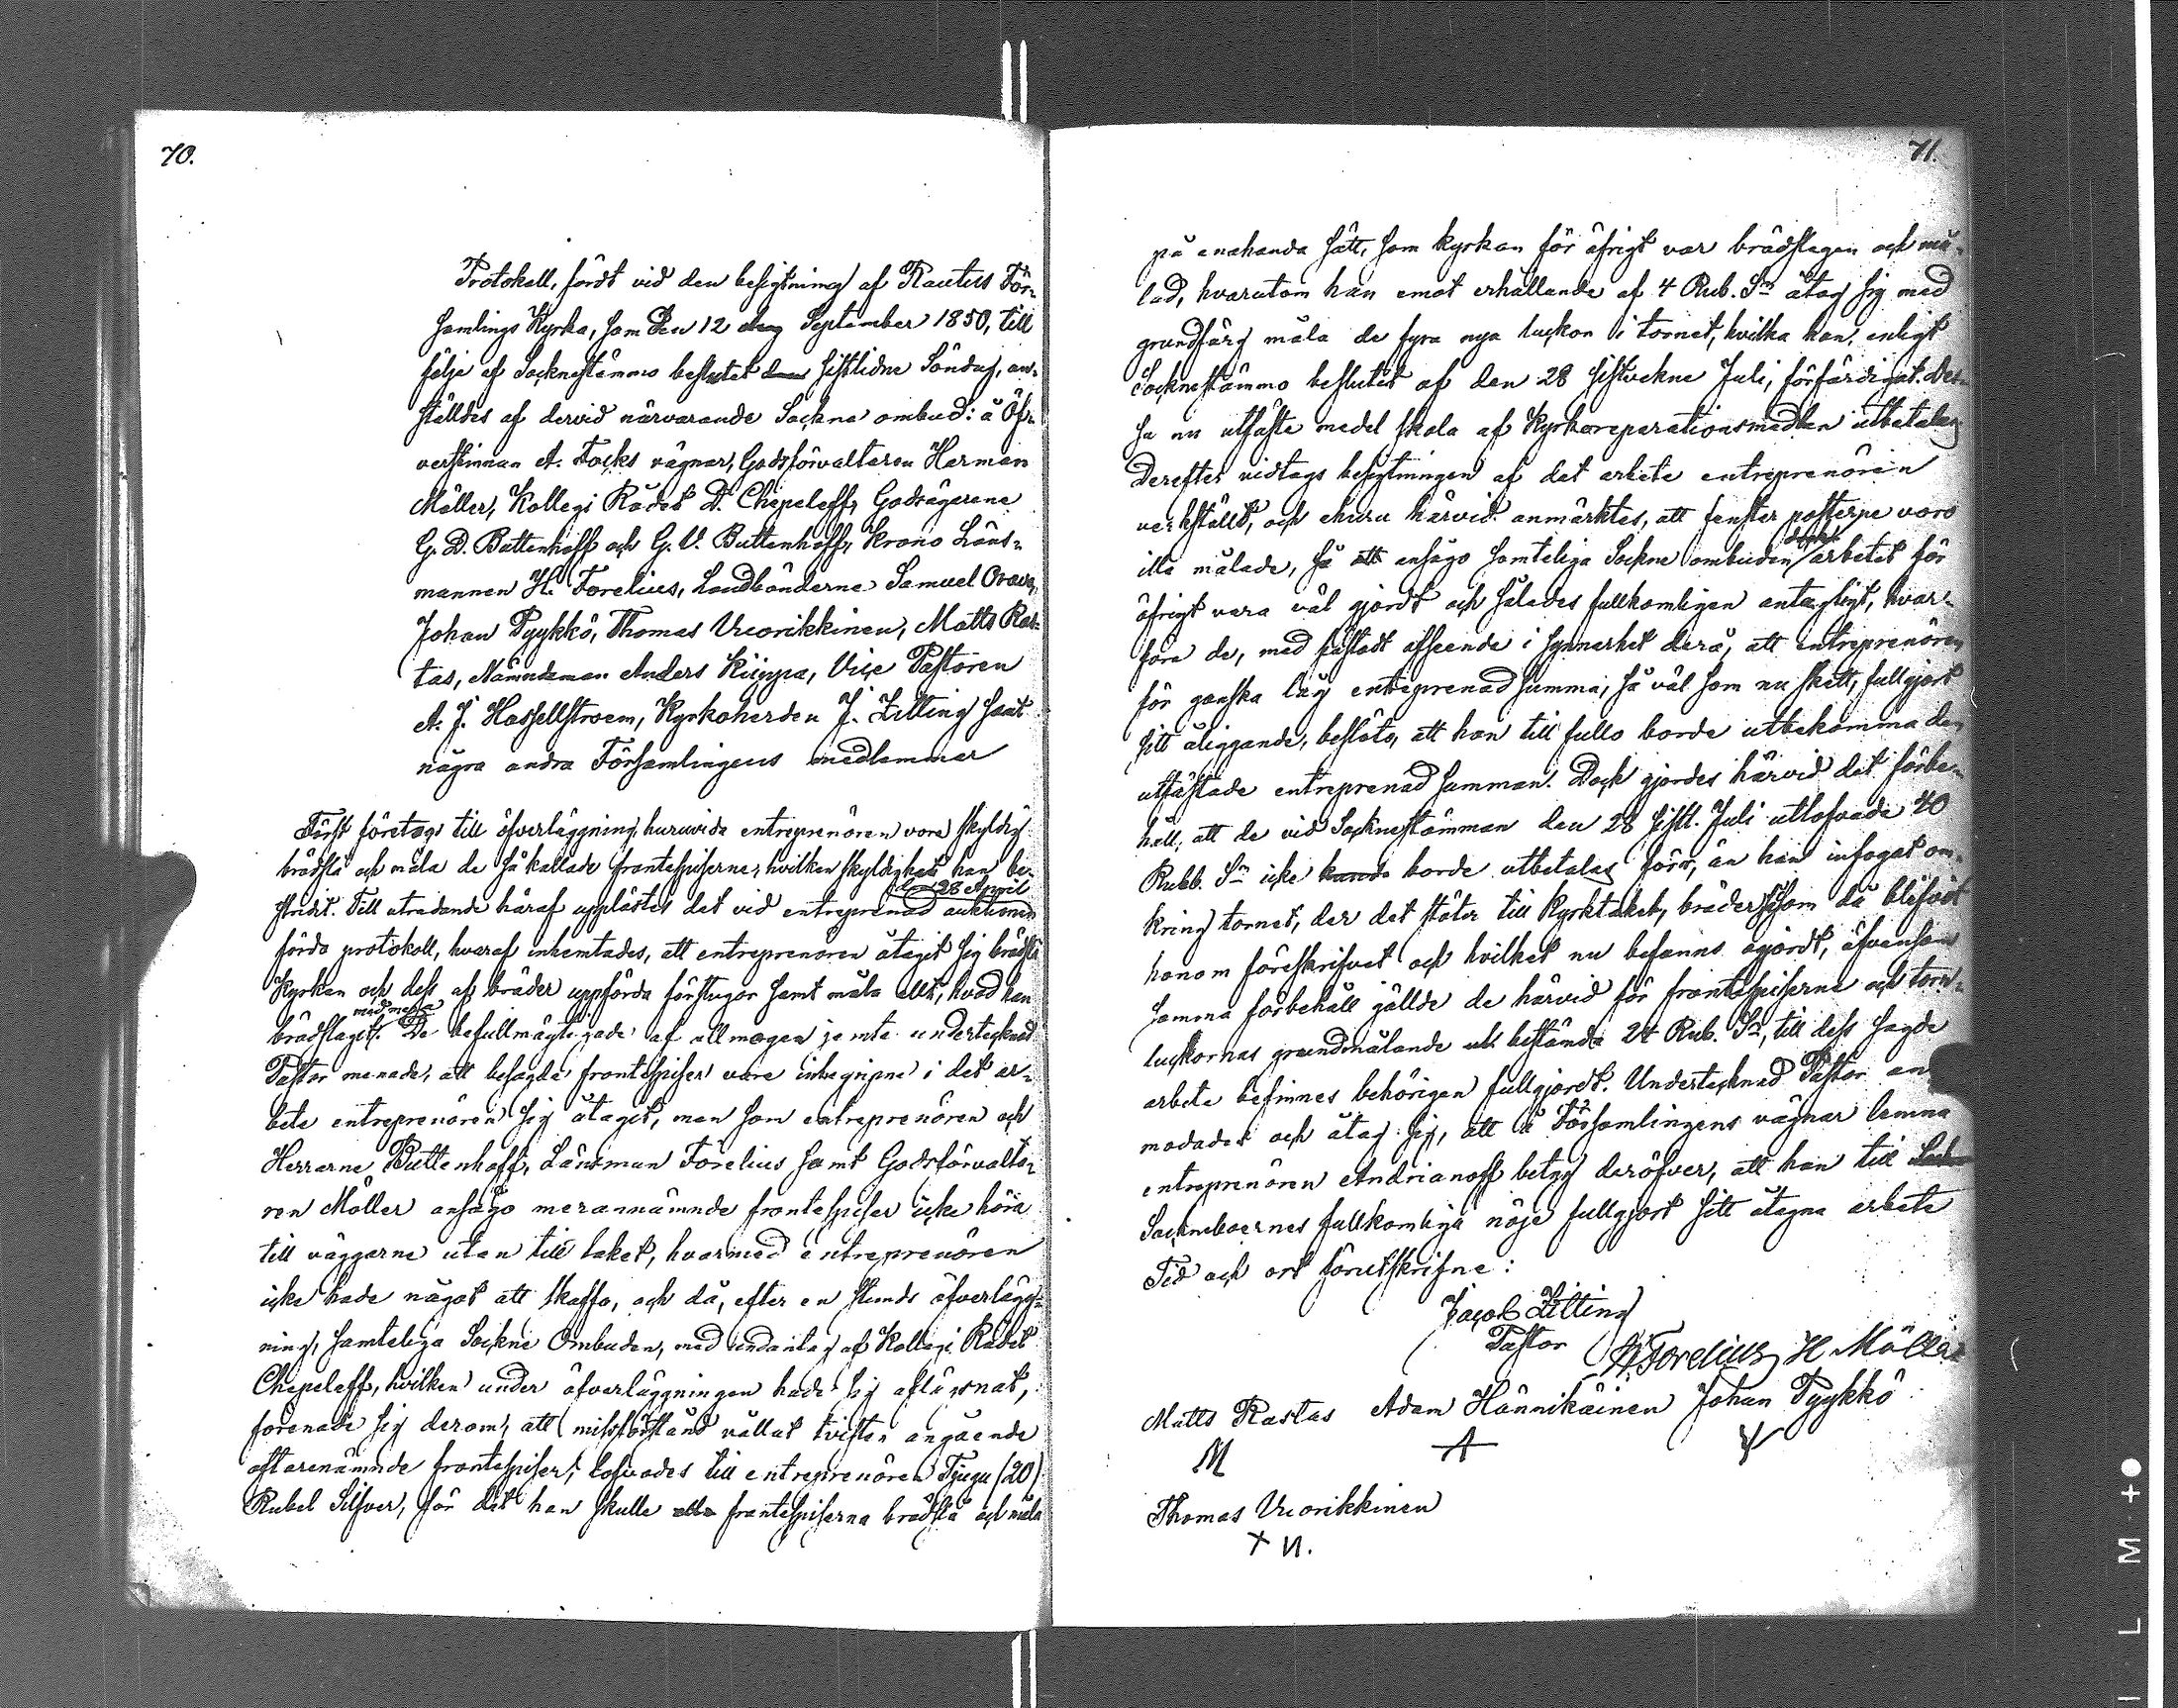 70.
Protokoll, fördt vid den besigtning af Rautus För-
samlings Kyrka, som den 12 September 1850, till
följe af Sockne stämmo beslutet sistlidne Söndag, an-
ställdes af dervid närvarande Sockne ombud: å Öf-
verstinnan A. Focks vägnar, Godsförvaltaren Herman
Möller, Kollegi Rådet D. Chepeleff, Godsägarene
G. D. Buttenhoff och G. V. Buttenhoff, Krono Läns-
mannen H. Forelius, Landbönderne Samuel Orava,
Johan Pyykkö, Thomas Vuorikkinen, Matts Ras-
tas, Nämndeman Anders Kiuppa, Vice Pastoren
A. J. Hassellstroem, Kyrkoherden J. Zitting samt
några andra Församlingens medlemmar
Först företogs till öfverläggning, huruvida entreprenören vore skyldig
brädslå och måla de så kallade frontespiserne, hvilken skyldighet han be-
den 28 April
stridit. Till utredande häraf upplästes det vid entreprenad auktionen
förda protokoll, hvaraf inhemtades, att entreprenören åtagit sig brädslå
Kyrkan och dess af bräder uppförda förstugor samt måla allt, hvad han
brädslagit. De befullmägtigade af allmogen jemte undertecknad
Pastor menade, att besagde frontespiser vore inbegripne i det ar-
bete entreprenören sig åtagit, men som entreprenören och
Herrarne Buttenhoff, Länsman Forelius samt Godsförvalta-
ren Möller ansågo merannämnde frontespiser icke höra
till väggarne utan till taket, hvarmed entreprenören
icke hade något att skaffa, och då, efter en stunds öfverlägg-
ning, samteliga Sockne Ombuden, med undantag af Kollegi Rådet
Chepeleff, hvilken under öfverläggningen hade sig aflägsnat,
förenade sig derom, att missförstånd vållat tvisten angående
oftarenämnde frontespiser, lofvades till entreprenören Tjugu (20)
Rubel Silfver, för det han skulle frontespiserna brädslå och måla
71.
på enahanda sätt, som kyrkan för öfrigt var brädslagen och må-
lad, hvarutom han emot erhållande af 4 Rub. Sr åtog sig med
grundfärg måla de fyra nya luckor i tornet, hvilka han, enligt
Sockne stämmo beslutet af den 28 sistvekne Juli, förfärdigat. Des-
sa nu utfäste medel skola af Kyrkoreparationsmedlen utbetalas
Derefter vidtogs besigtningen af det arbete entreprenören
verkställt, och ehuru härvid anmärktes, att fenster posterne voro
illa målade, så ansågo samteliga Sockne ombuden arbetet för
öfrigt vara väl gjordt och således fullkomligen antagligt, hvar-
före de, med fästadt afseende i synnerhet derå, att entreprenören
för ganska låg entreprenad summa, så väl som nu skett, fullgjort
sitt åliggande, beslöto, att han till fullo borde utbekomma den
utfästade entreprenad summan. Dock gjordes härvid det förbe-
håll, att de vid Socknestämman den 28 sistl. Juli utlofvade 40
Rubl. Sr icke borde utbetalas förr, än han infogat om-
kring tornet, der det stöter till Kyrktaket, bräder, som då blifvit
honom föreskrifvet och hvilket nu befanns ogjordt, äfvensom
samma förbehåll gällde de härvid för frontespiserne och torn-
luckornas grundmålande bestämda 24 Rub. Sr, till dess sagde
arbete befinnes behörigen fullgjordt. Undertecknad Pastor an-
modades och åtog sig, att å Församlingens vägnar lemna
entreprenören Andrianoff betyg deröfver, att han till
Socknboernes fullkomliga nöje fullgjort sitt åtagna arbete
Tid och ort förutskrifne:
Jacob Zitting
Pastor
H Forelius H Möller
Matts Rastas Adam Hännikäinen Johan Pyykkö
M A
Thomas Vuorikkinen